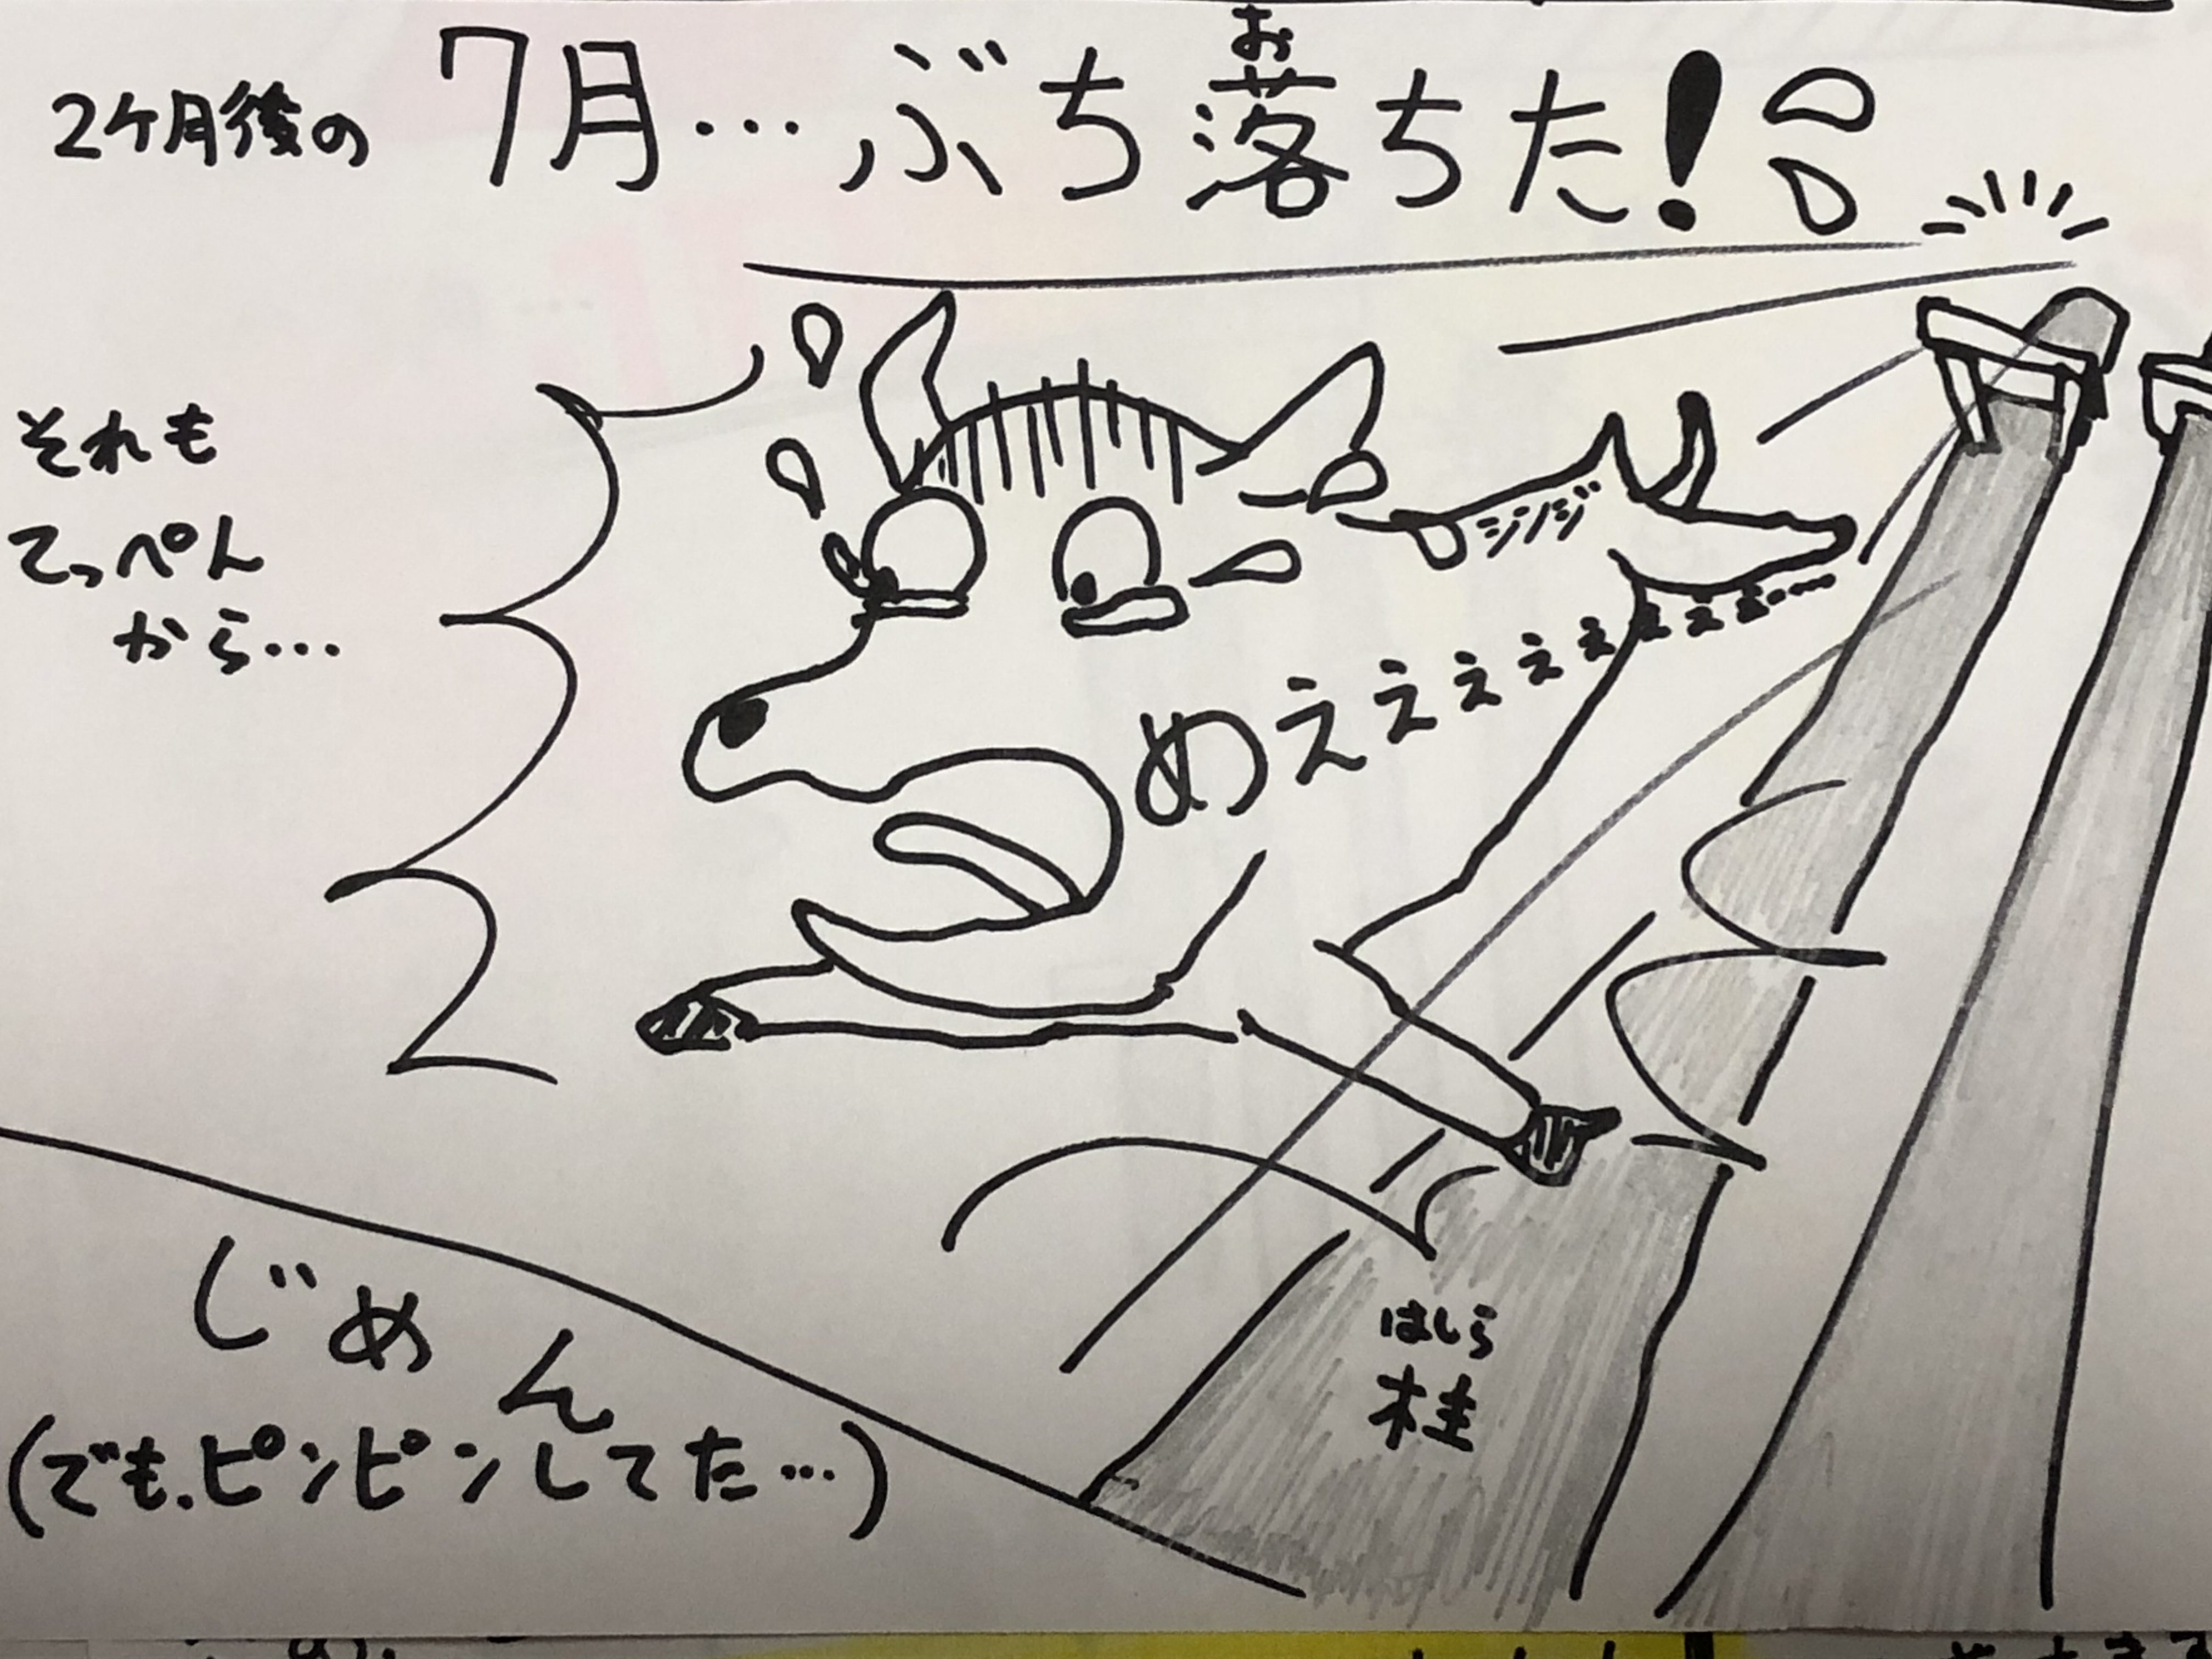 2ケ月後の 7月…ぶち落ちた!
お
それも
てっぺん
から…
ジンジ
めえぇぇぇぇぇぇぇぇ……
はしら
柱
じめん
(でも、ピンピンしてた…)